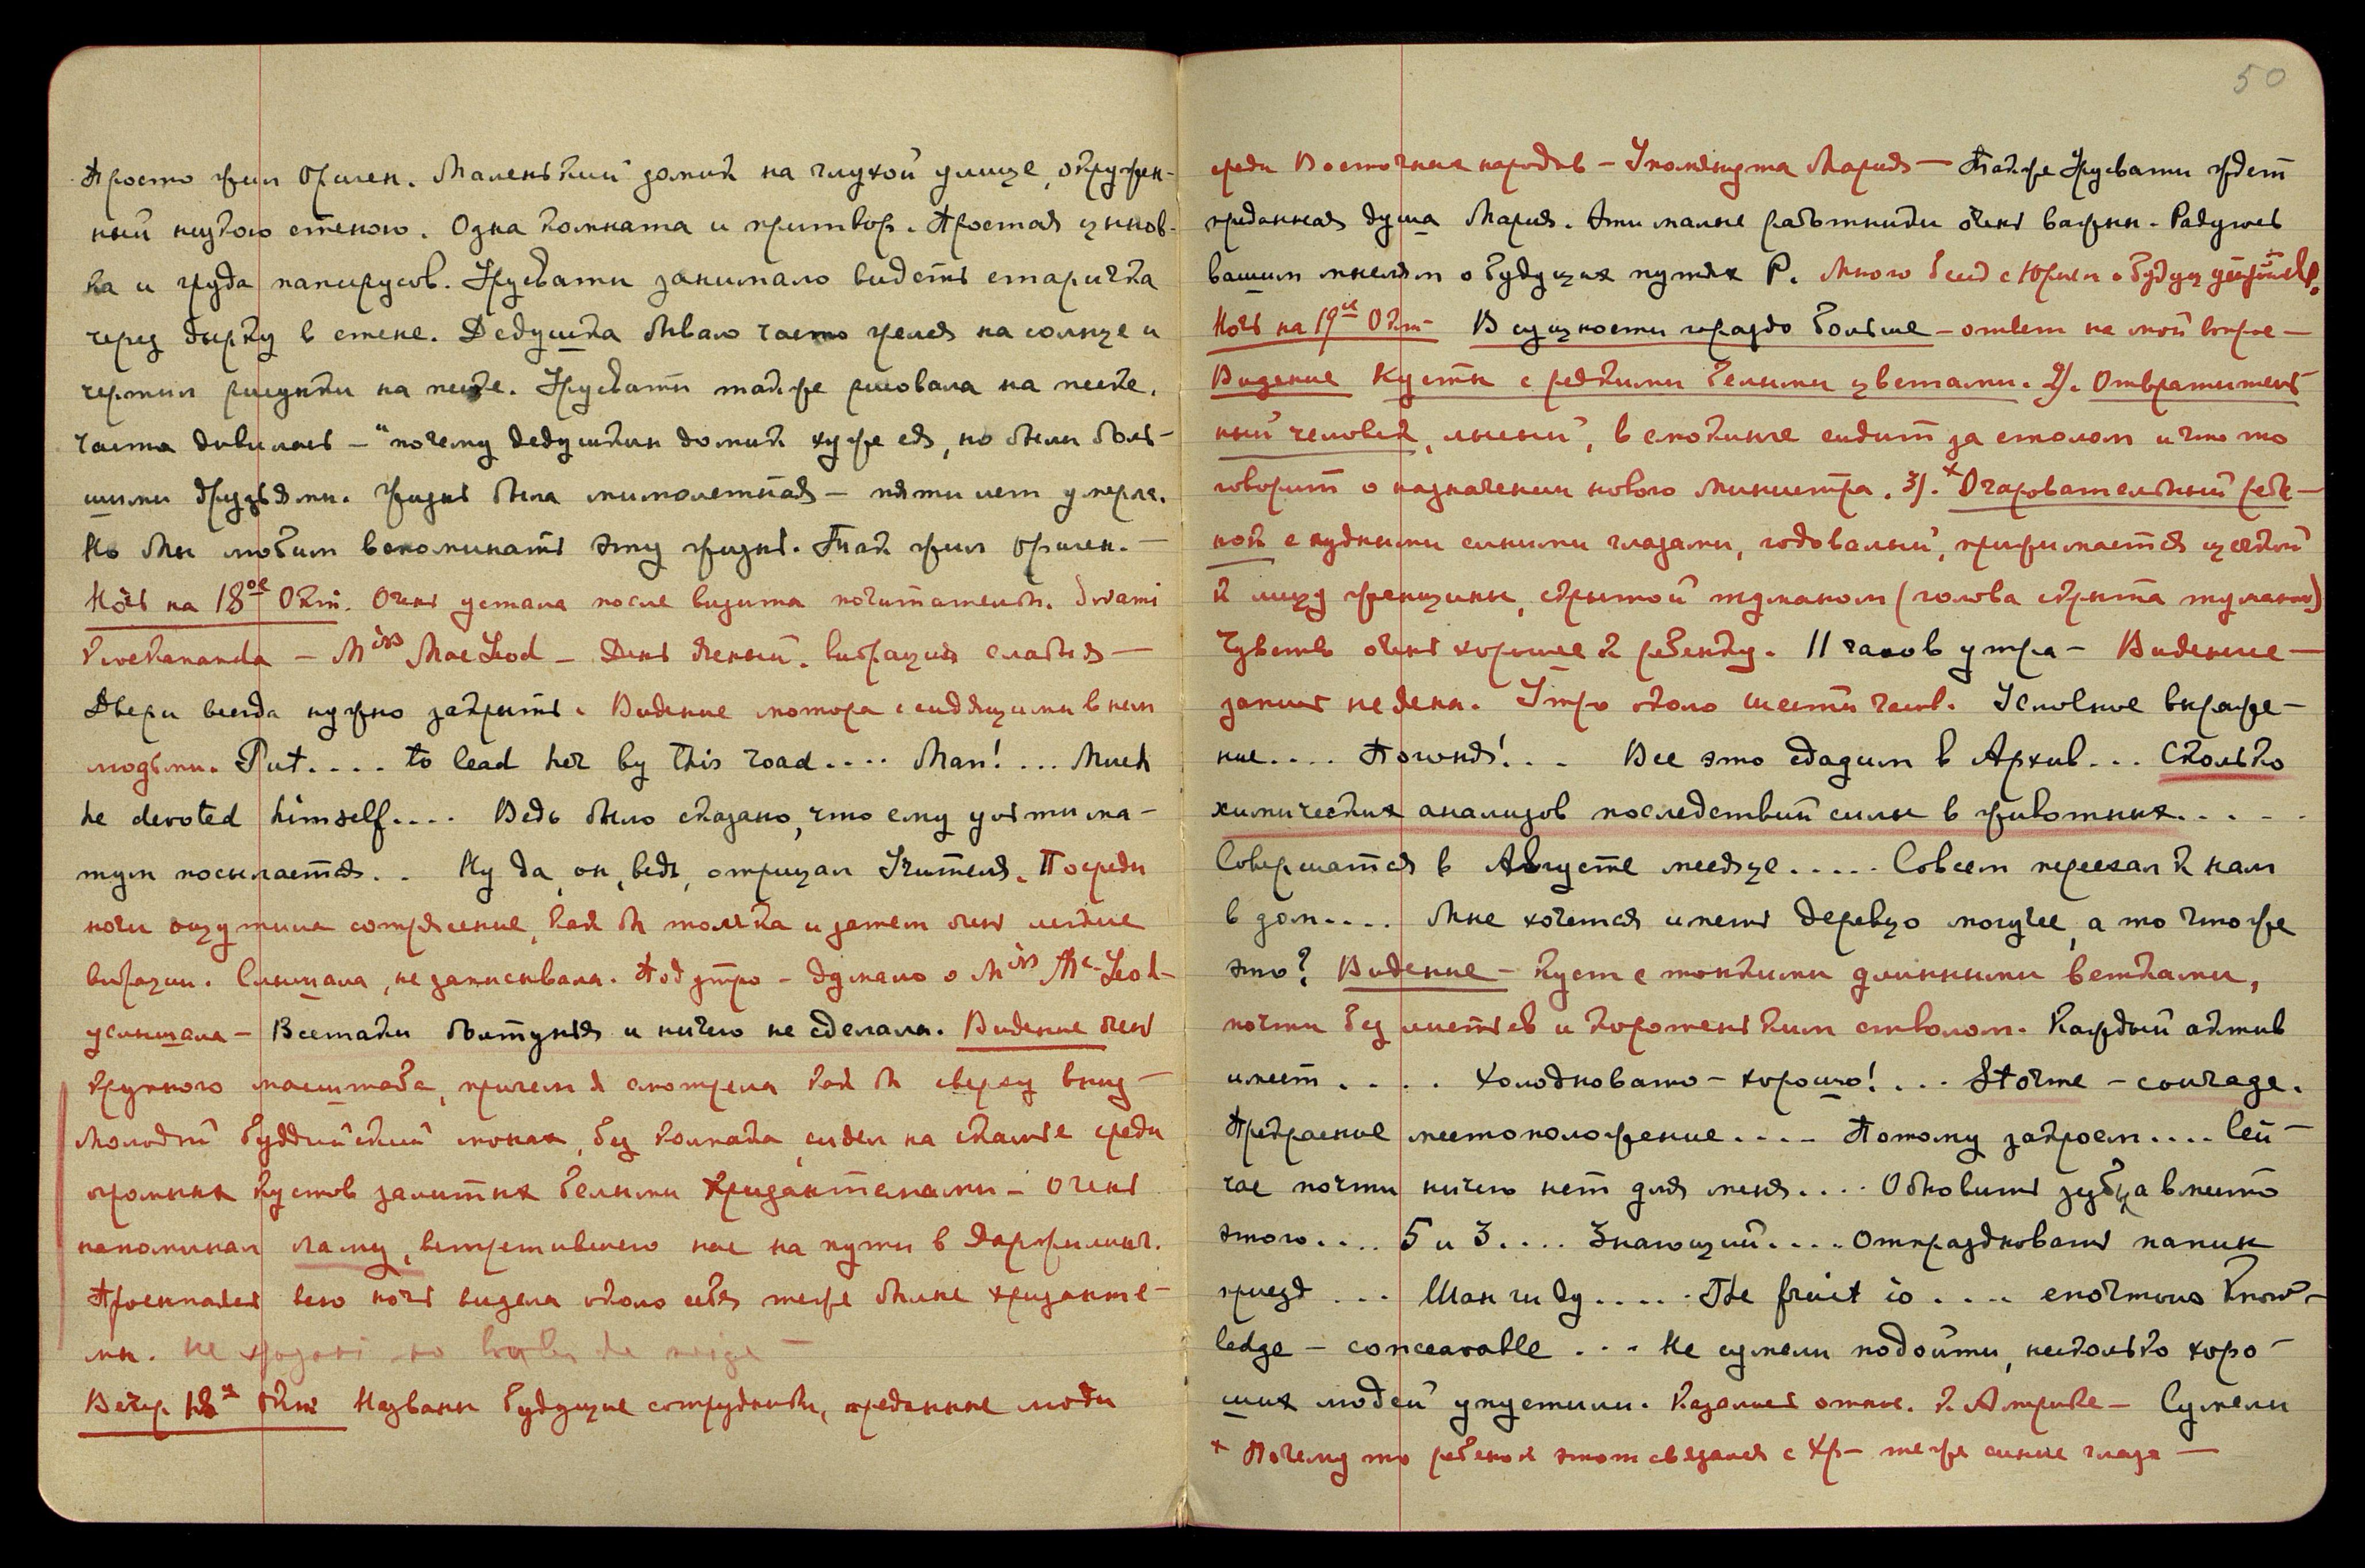 Просто жил Ориген. Маленький домик на глухой улице, окружен-
ный низкою стеною. Одна комната и притвор. Простая цынов-
ка и груда папирусов. Урусвати занимало видеть старичка
через дырку в стене. Дедушка бывало часто грелся на солнце и
чертил рисунки на песке. Урусвати также рисовала на песке.
часто дивилась – "почему дедушкин домик хуже ея, но были боль-
шими друзьями. Жизнь была мимолетная – пяти лет умерла.
Но Мы любим вспоминать эту жизнь. Так жил Ориген. –
Ночь на 18ое Окт. Очень устала после визита почитательн. Swami
Vivekananda – Miss MacLeod – День ясный. Вибрация слабая –
Двери всегда нужно закрыть. Видение мотора с сидящими в нем
людьми. Put.... to lead her by this road.... Man!... Much
he devoted himself.... Ведь было сказано, что ему ультима-
тум посылается.. Ну да, он, ведь, отрицал Учителя. Посреди
ночи ощутила сотрясение, как бы толчка и затем очень легкие
вибрации. Слышала, не записывала. Под утро – думаю о Miss Mc-Leod –
услышала – Всетаки болтунья и ничего не сделала. Видение очень
крупного масштаба, причем я смотрела как бы сверху вниз –
Молодой буддийский монах, без колпака, сидел на скамье среди
огромных кустов залитых белыми хризантемами – Очень
напоминал ламу, встретившего нас на пути в Дарджилинг.
Просыпаясь всю ночь видела около себя теже белые хризанте-
мы. Не
Вечер 18го Окт. Названы будущие сотрудники, преданные люди
50
среди Восточных народов – Упомянута Мария – Также Урусвати ждет
преданная душа Мария. Эти малые работники очень важны. Радуюсь
вашим мыслям о будущих путях Р. Много бесед с Юрием о будущ
Ночь на 19ое Окт – В сущности гораздо больше – ответ на мой вопрос –
Видение Кусты с редкими белыми цветами. 2). Отвратитель-
ный человек, лысый, в смокинге сидит за столом и что то
говорит о назначении нового министра. 3). x Очаровательный ребе-
нок с чудными синими глазами, годовалый, прижимается щечкой
к лицу женщины, скрытой туманом (голова скрыта туманом)
Чувство очень хорошее к ребенку. 11 часов утра – Видение –
запись не ясна. Утро около шести часов. Условное выраже-
ние.... Погоня!... Все это сдадим в Архив... Сколько
химических анализов последствий силы в животных.....
Совершатся в Августе месяце..... Совсем переехал к нам
в дом.... Мне хочется иметь деревцо могучее, а то что же
это? Видение – Куст с тонкими длинными ветками,
почти без листьев и коротеньким стволом. Каждый актив
имеет.... Холодновато – хорошо!... Storme – courage.
Прекрасное местоположение.... Потому закроем.... Сей-
час почти ничего нет для меня.... Обновить зубца вместо
этого.... 5 и 3.... Знающий.... Отпраздновать папин
приезд... Шан ги ду..... The fruit is.... enormous know-
ledge – concearable... Не сумели подойти, несколько хоро-
ших людей упустили. Касалось относ. к Америке – Сумели
x Почему то ребенок этот связался с Хр – теже синие глаза –